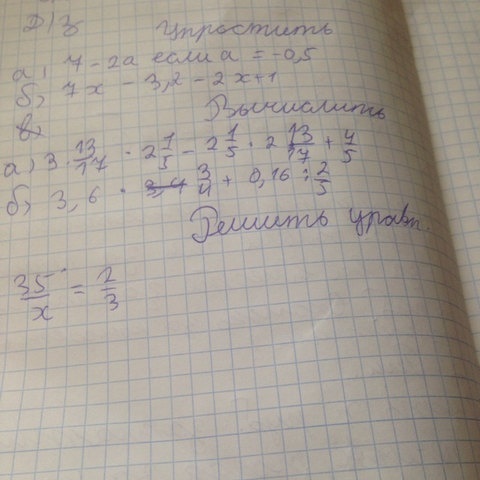 Д/з Упростить
а) 7 - 2а если а = -0,5
б) 7x - 3,2 - 2x + 1
Вычислить
а) 3 · 13/17 · 2 1/5 - 2 1/5 · 2 13/17 + 4/5
б) 3,6 · 3/4 + 0,16 : 2/5
Решить уравн.
35/x = 2/3